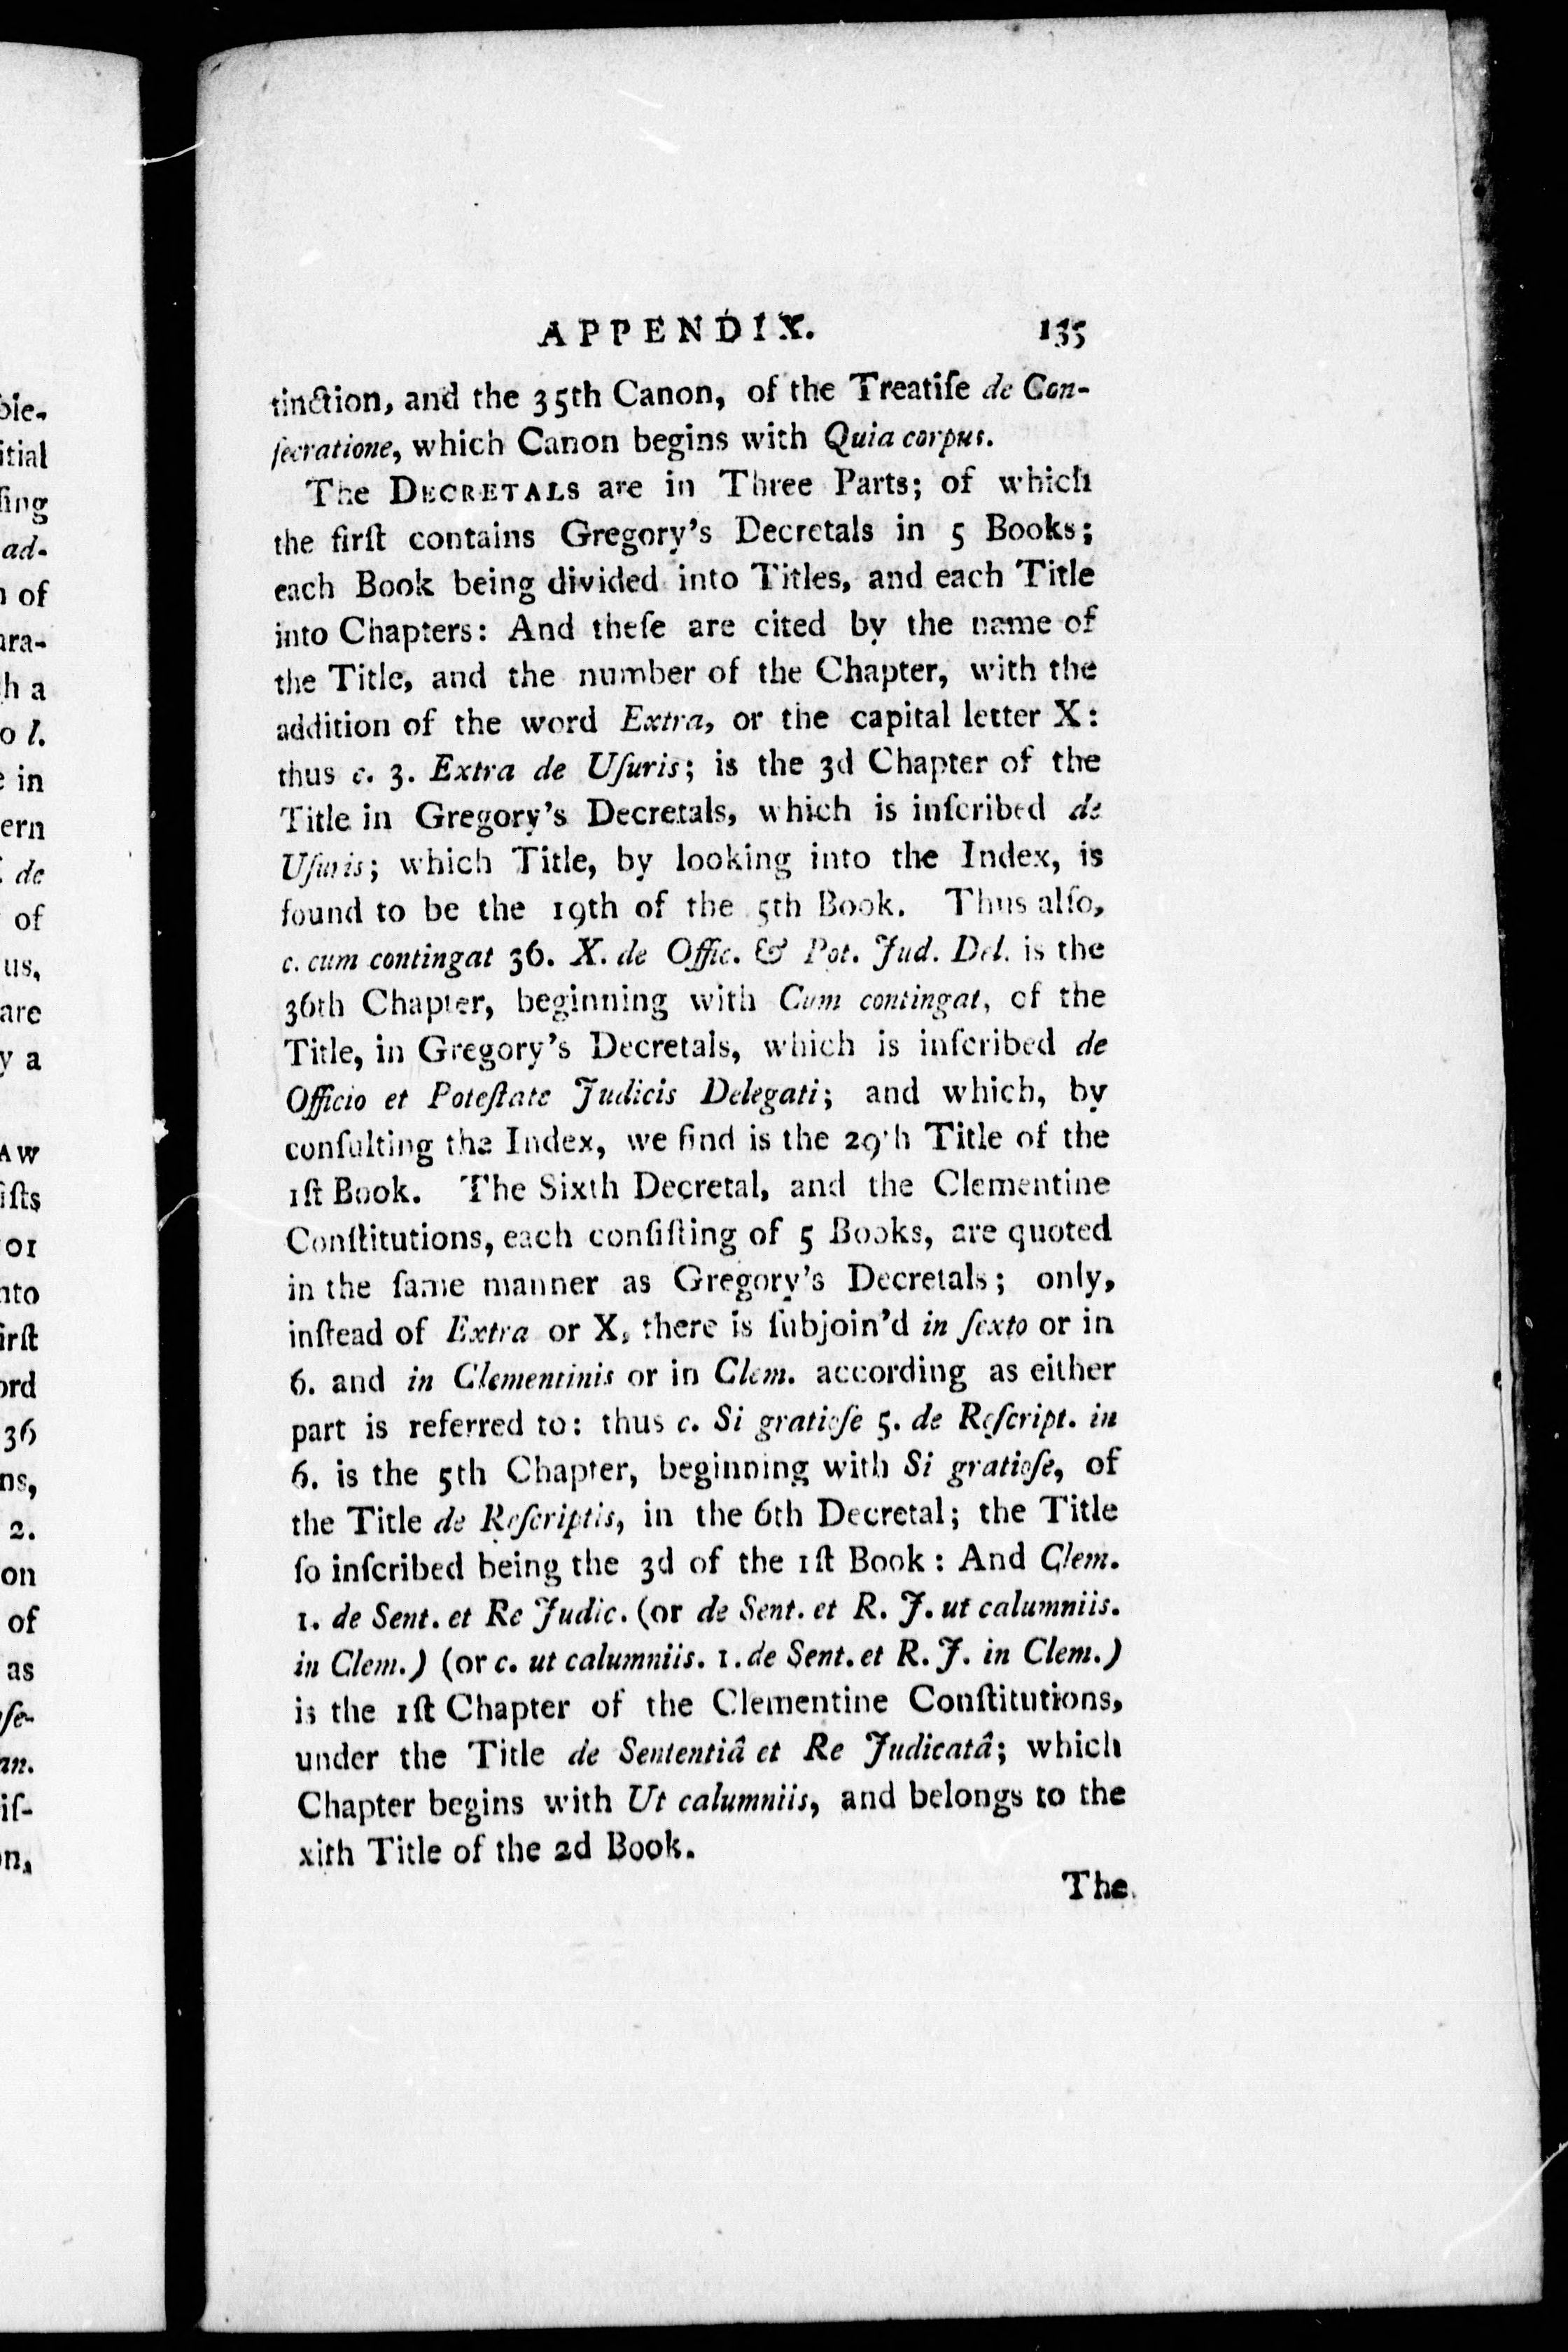 APPENDIX. 135
tinction, and the 35th Canon, of the Treatiſe de Con-
ſecratione, which Canon begins with Quia corpus.
The DECRETALS are in Three Parts; of which
the firſt contains Gregory's Decretals in 5 Books;
each Book being divided into Titles, and each Title
into Chapters: And theſe are cited by the name of
the Title, and the number of the Chapter, with the
addition of the word Extra, or the capital letter X:
thus c. 3. Extra de Uſuris; is the 3d Chapter of the
Title in Gregory's Decretals, which is inſcribed de
Uſuris; which Title, by looking into the Index, is
found to be the 19th of the 5th Book. Thus alſo,
c. cum contingat 36. X. de Offic. & Pot. Jud. Del. is the
36th Chapter, beginning with Cum contingat, of the
Title, in Gregory's Decretals, which is inſcribed de
Officio et Poteſtate Judicis Delegati; and which, by
conſulting the Index, we find is the 29th Title of the
1ſt Book. The Sixth Decretal, and the Clementine
Conſtitutions, each conſiſting of 5 Books, are quoted
in the ſame manner as Gregory's Decretals; only,
inſtead of Extra or X, there is ſubjoin'd in ſexto or in
6. and in Clementinis or in Clem. according as either
part is referred to: thus c. Si gratioſe 5. de Reſcript. in
6. is the 5th Chapter, beginning with Si gratioſe, of
the Title de Reſcriptis, in the 6th Decretal; the Title
ſo inſcribed being the 3d of the 1ſt Book: And Clem.
1. de Sent. et Re Judic. (or de Sent. et R. J. ut calumniis.
in Clem.) (or c. ut calumniis. 1. de Sent. et R. J. in Clem.)
is the 1ſt Chapter of the Clementine Conſtitutions,
under the Title de Sententiâ et Re Judicatâ; which
Chapter begins with Ut calumniis, and belongs to the
xith Title of the 2d Book.
The